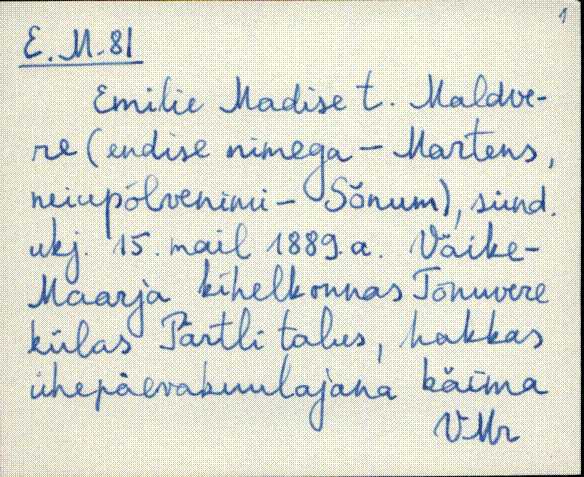 1
E.M.81
Emilie Madise t. Maldve-
re (endise nimega - Martens,
neiupõlvenimi - Sõnum), sünd.
ukj. 15. mail 1889.a. Väike-
Maarja kihelkonnas Tõnuvere
külas Pärtli talus, hakkas
ühepäevakuulajana käima
VMr